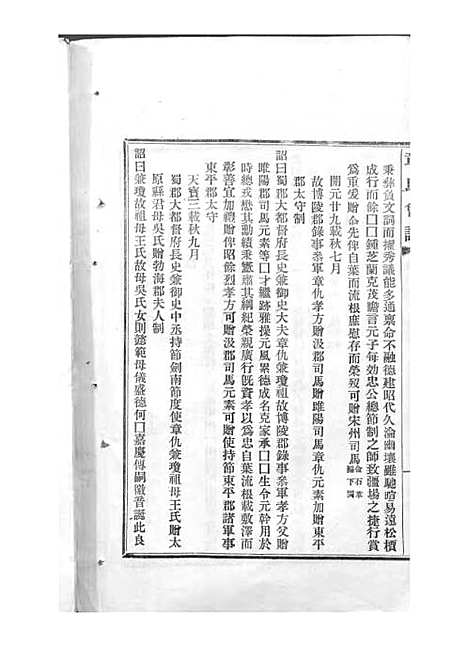 秉彝負文詞而擢秀議能多通禀命不融德建昭代久淪幽壤雖馳暄易遠松檟
成行而餘口口鍾芝蘭克茂瞻言元子每効忠公總節制之師致疆場之捷行賞
爲重爰贈命先俾自葉而流根庶慰存而榮歿可贈宋州司馬
開元廿九載秋七月
故博陵郡錄事參軍章仇孝方贈汲郡司馬贈睢陽司馬章仇元素加贈東平
郡太守制
詔曰蜀郡大都督府長史兼御史大夫章仇兼瓊故博陵郡錄事參軍孝方贈
睢陽郡司馬元素等曰才繼跡雅操元風累德成名克家承口口生令元幹用於
時總戎懋其勳績秉憲肅其綱紀榮親廣行旣資孝以爲忠自葉流根載敷澤而
彰善宜加禮贈俾昭餘烈孝方可贈汲郡司馬元素可贈使持節東平郡諸軍事
東平郡太守
天寶三載秋九月
蜀郡大都督府長史兼御史中丞持節劍南節度使章仇兼瓊祖母王氏贈太
原縣君母吳氏贈勃海郡夫人制
詔曰兼瓊故祖母王氏故母吳氏女則懿範母儀盛德何口嘉慶傳嗣徽音誕此良